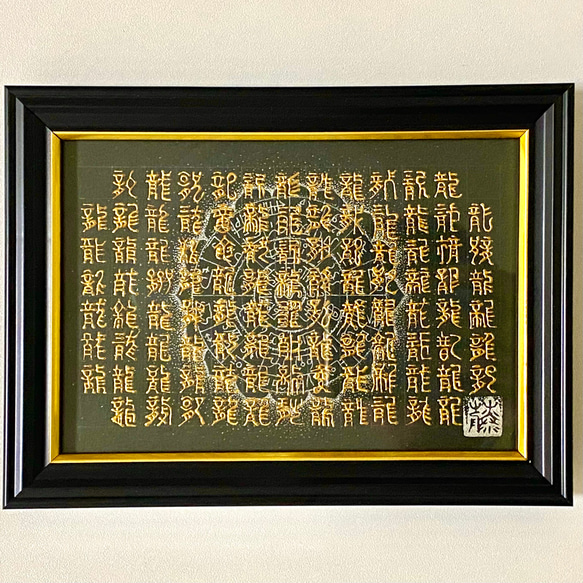 龍龍龍龍龍龍
龍龍龍龍龍龍龍龍
龍龍龍龍龍龍龍龍
龍龍龍龍龍龍龍龍
龍龍龍龍龍龍龍龍
龍龍龍龍龍龍龍龍
龍龍龍龍龍龍龍龍
龍龍龍龍龍龍龍龍
龍龍龍龍龍龍龍龍
龍龍龍龍龍龍龍龍
龍龍龍龍龍龍龍龍
龍龍龍龍龍龍龍龍
龍龍龍龍龍龍